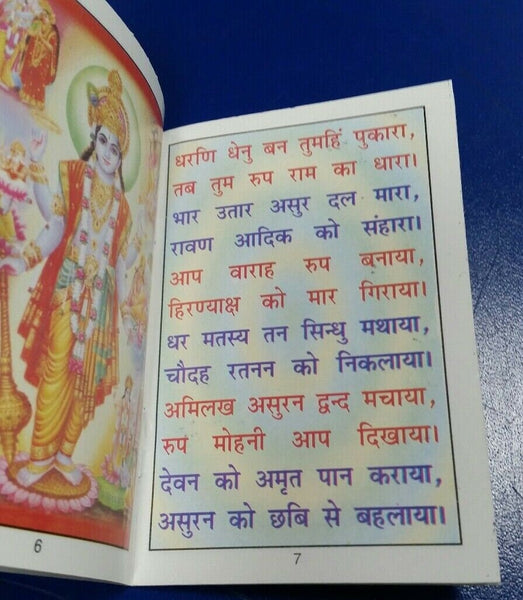 धरणि धेनु बन तुमहिं पुकारा,
तब तुम रुप राम का धारा।
भार उतार असुर दल मारा,
रावण आदिक को संहारा।
आप वाराह रुप बनाया,
हिरण्याक्ष को मार गिराया।
धर मतस्य तन सिन्धु मथाया,
चौदह रतनन को निकलाया।
अमिलख असुरन द्वन्द मचाया,
रुप मोहनी आप दिखाया।
देवन को अमृत पान कराया,
असुरन को छबि से बहलाया।
6
7